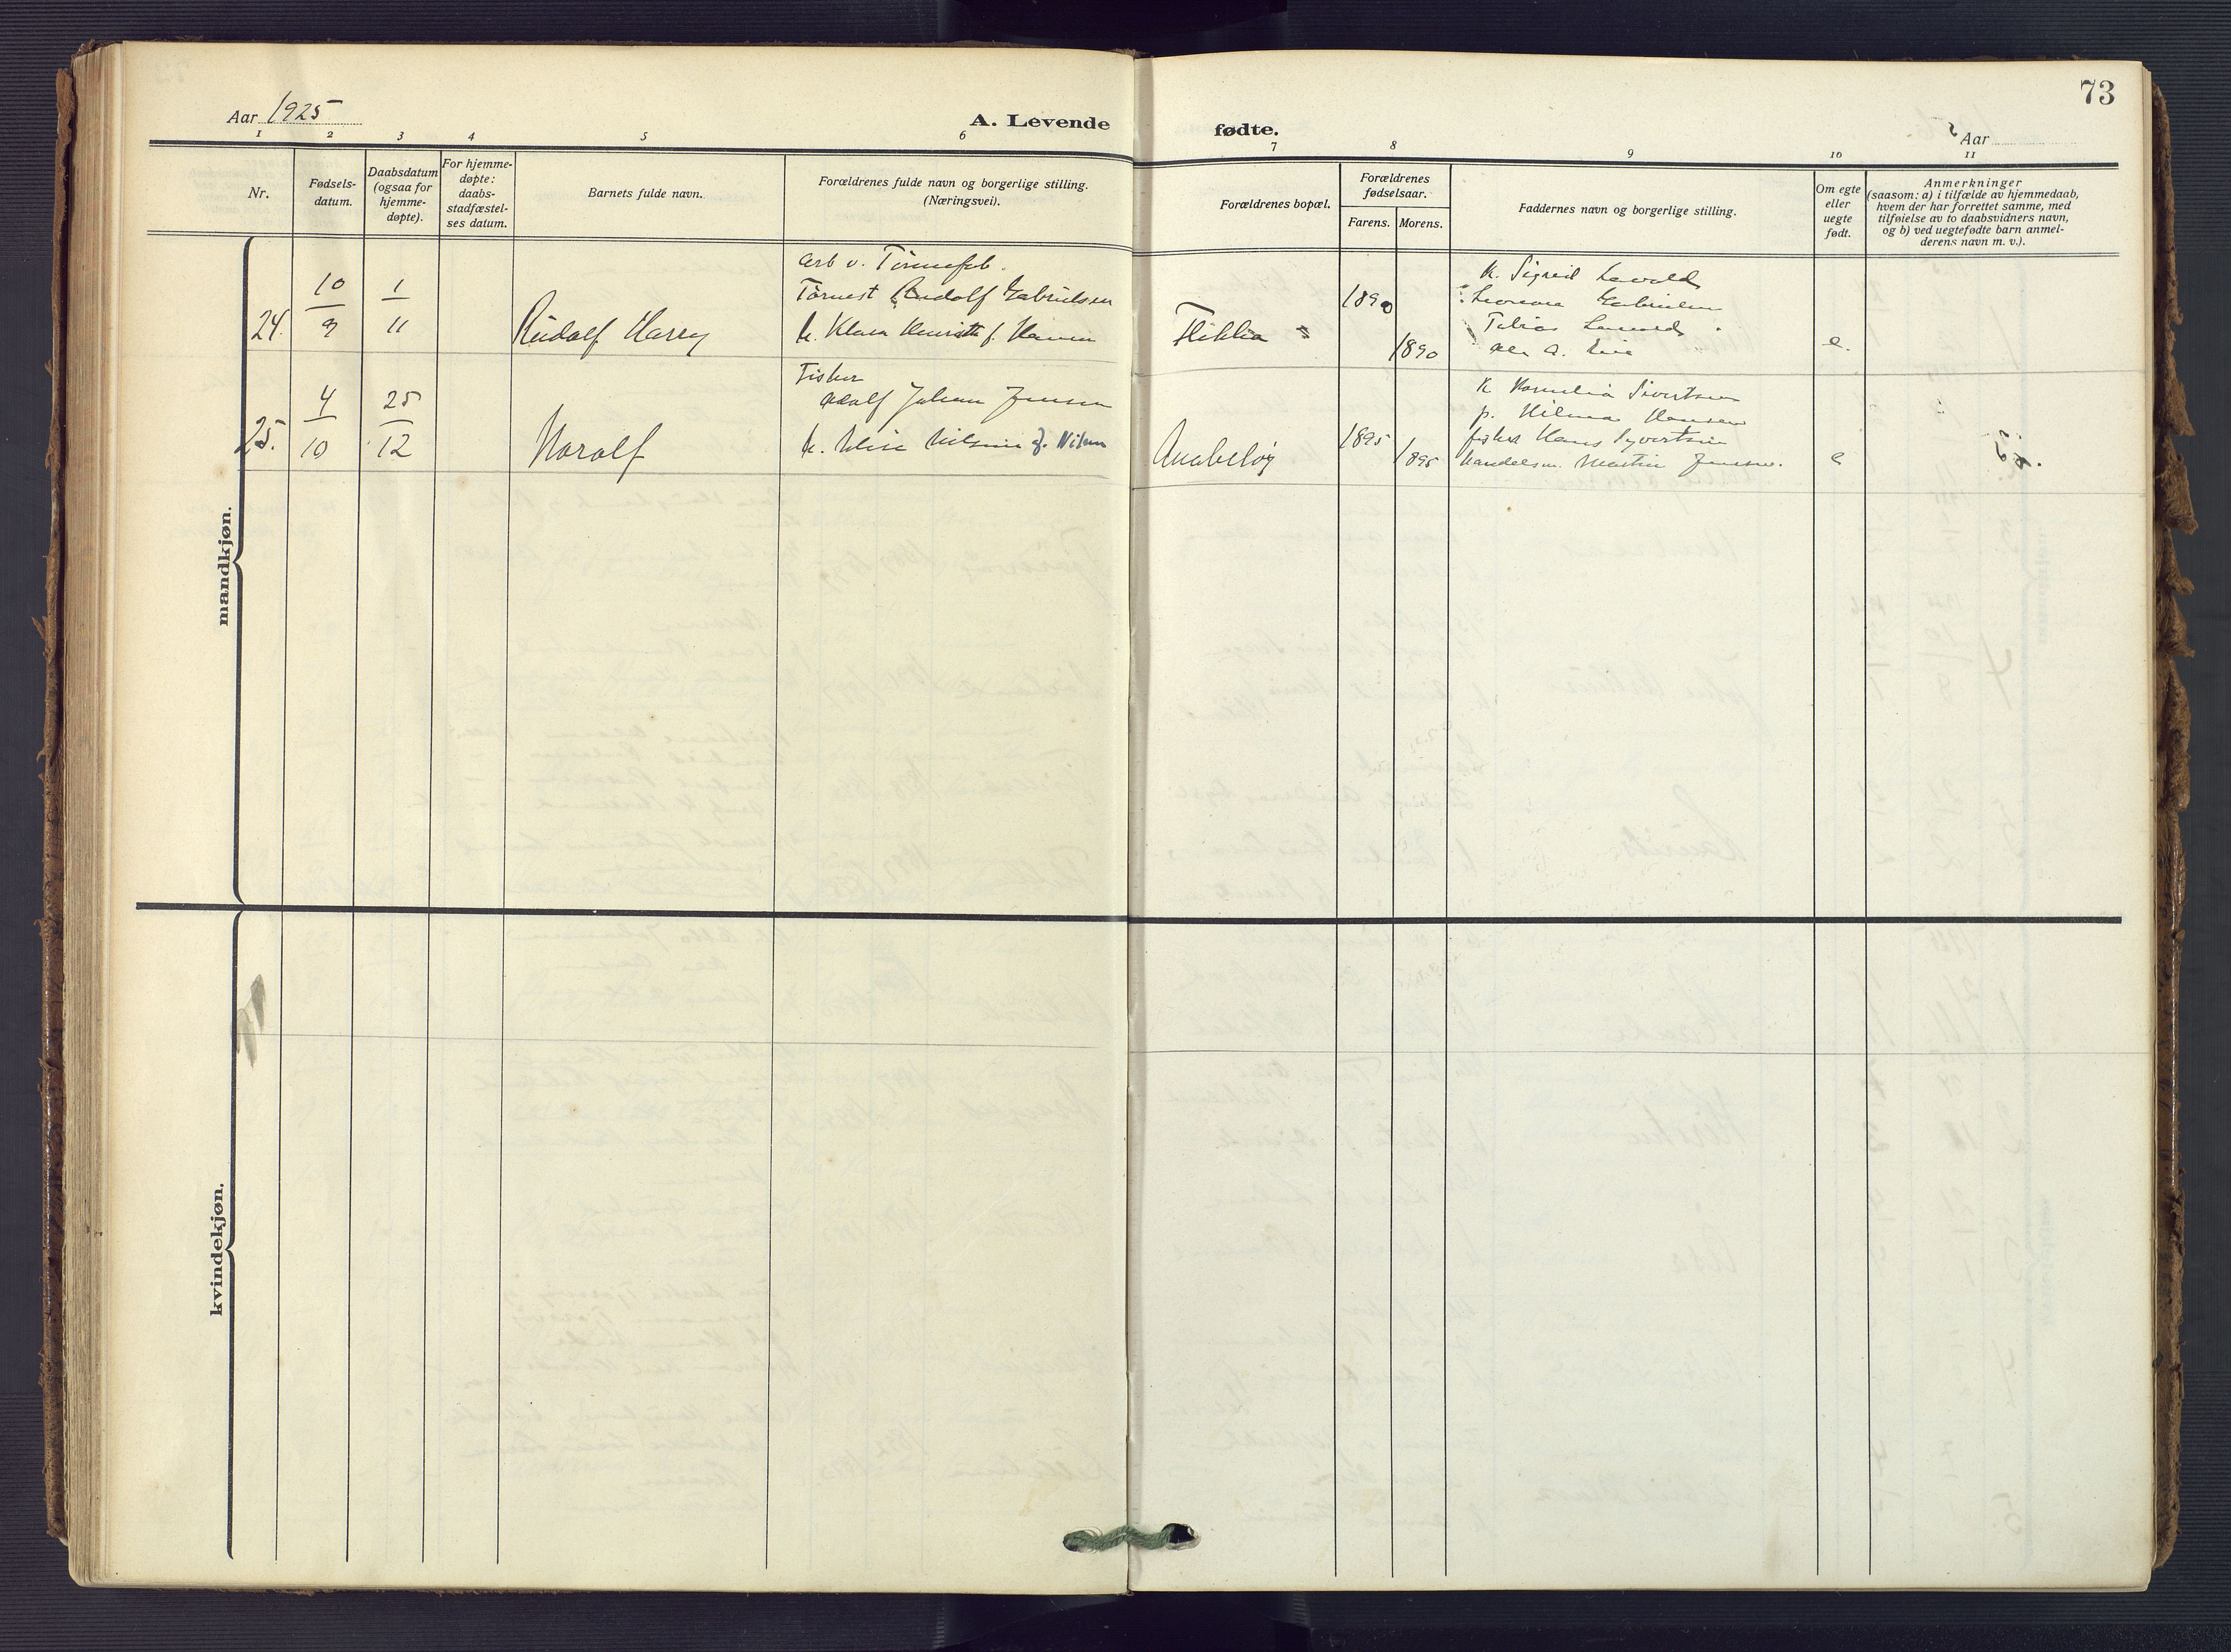 73
Aar 1925
A. Levende fødte.
Aar
1 2 3 4 5 6 7 8 9 10 11
Nr.
Fødsels-
datum.
Daabsdatum
(ogsaa for
hjemme-
døpte).
For hjemme-
døpte:
daabs-
stadfæstel-
ses datum.
Barnets fulde navn.
Forældrenes fulde navn og borgerlige stilling.
(Næringsvei).
Forældrenes bopæl.
Forældrenes
fødselsaar.
Farens. Morens.
Faddernes navn og borgerlige stilling.
Om egte
eller
uegte
født.
Anmerkninger
(saasom: a) i tilfælde av hjemmedaab,
hvem der har forrettet samme, med
tilføielse av to daabsvidners navn,
og b) ved uegtefødte barn anmel-
derens navn m. v.).
mandkjøn.
24.
10
9
1
11
Rudolf Harry
arb v. Tønnefab.
Rudolf Gabrielsen
h. Klara Henriette f. Hansen
Flikkа
1890
1890
k. Sigrid
Gabrielsen
Tobias
e.
25.
4
10
25
12
Harolf
Fisker
Adolf Johan Jensen
h. Nilsen f. Nilsen
Anabeløy
1895
1895
k Kornelia Sivertsen
p. Hilma Hansen
fisker Hans Syvertsen
handelsm. Martin Jensen.
e
kvindekjøn.